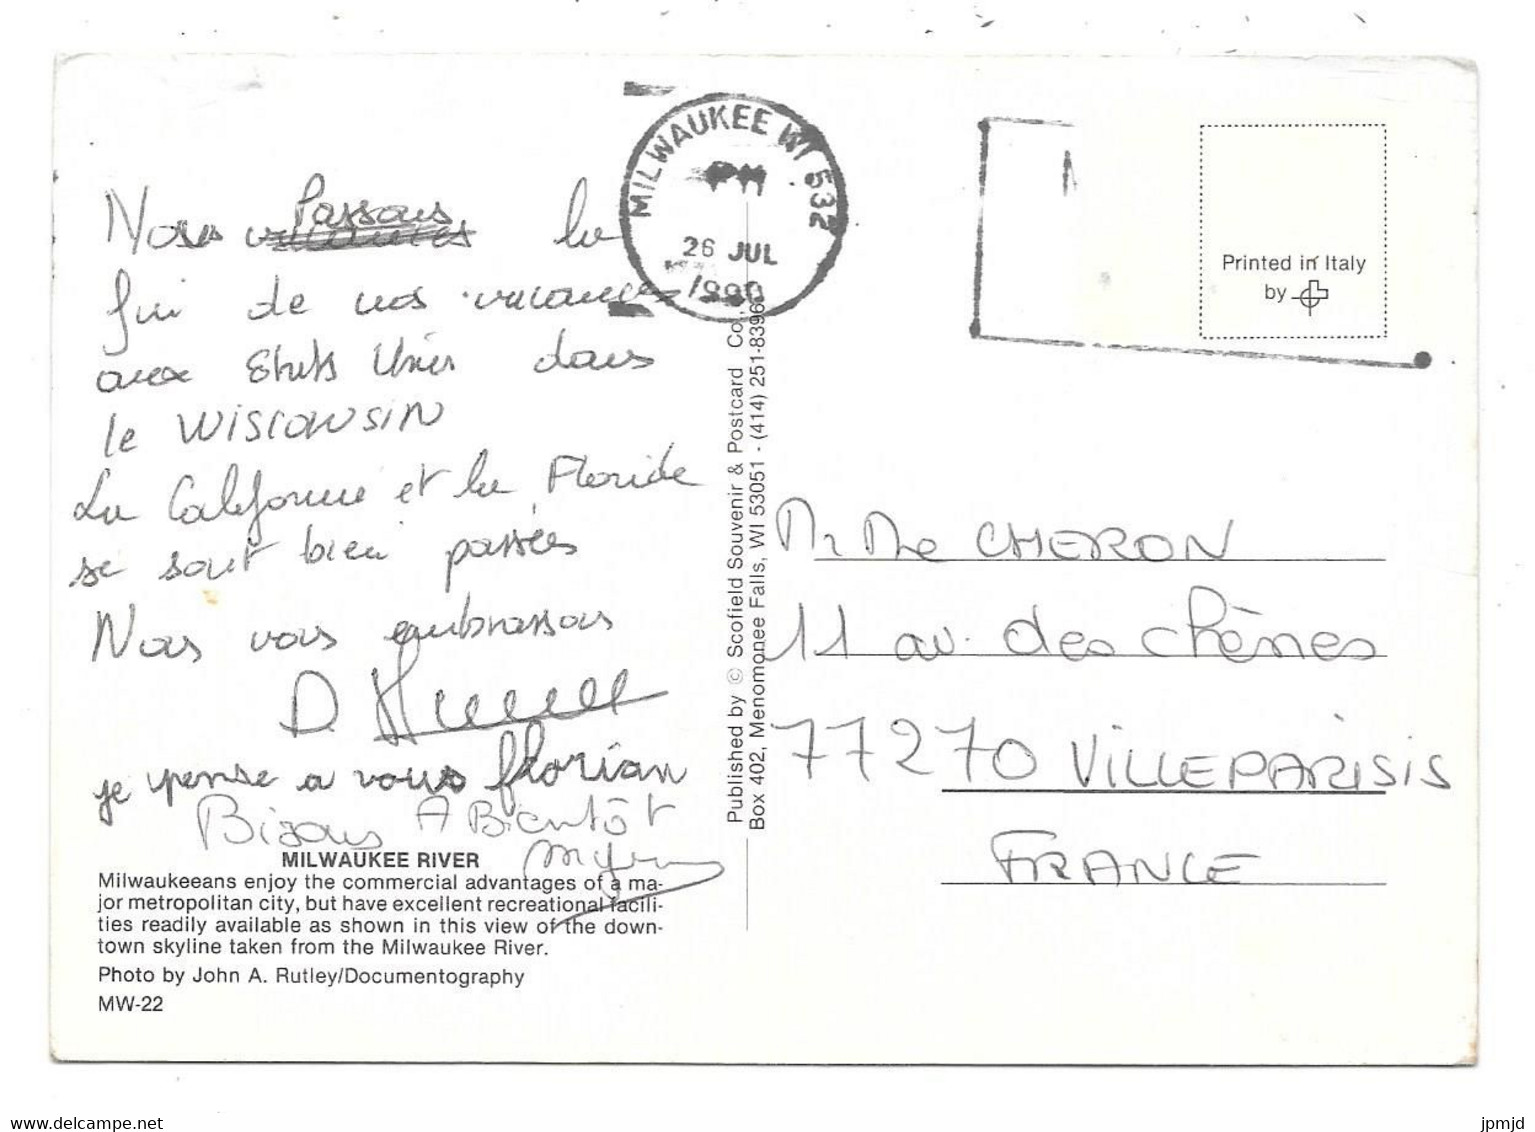 MILWAUKEE WI 532
PM
26 JUL
1990
Printed in Italy
by
Nous Passons la
fin de nos vacances
aux Etats Unis dans
le WISCONSIN
La Californie et la Floride
se sont bien passées
Nous vous embrassons
D.
je pense a vous florian
Bisous A Bientôt
MILWAUKEE RIVER
Milwaukeeans enjoy the commercial advantages of a ma-
jor metropolitan city, but have excellent recreational facili-
ties readily available as shown in this view of the down-
town skyline taken from the Milwaukee River.
Photo by John A. Rutley/Documentography
MW-22
Published by © Scofield Souvenir & Postcard Co.,
Box 402, Menomonee Falls, WI 53051 - (414) 251-8396
Mr Me CHERON
11 av. des chênes
77270 VILLEPARISIS
FRANCE
www.delcampe.net
jpmjd